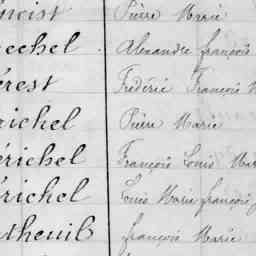 noist Pierre Marie
echel . Alexandre françois
érest Frédéric François
richel Pierre Marie
érichel François Louis
richel Louis Marie françois
theuil françois Marie